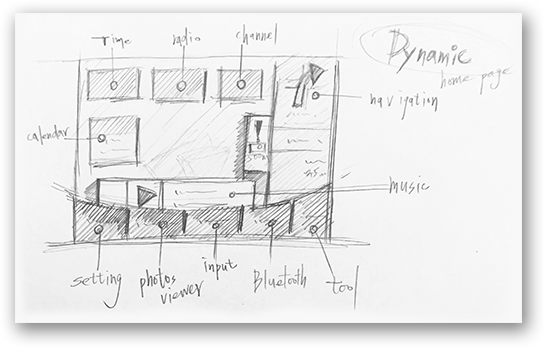 Time radio channel
Dynamic
home page
navigation
calendar
music
setting photos viewer input Bluetooth tool